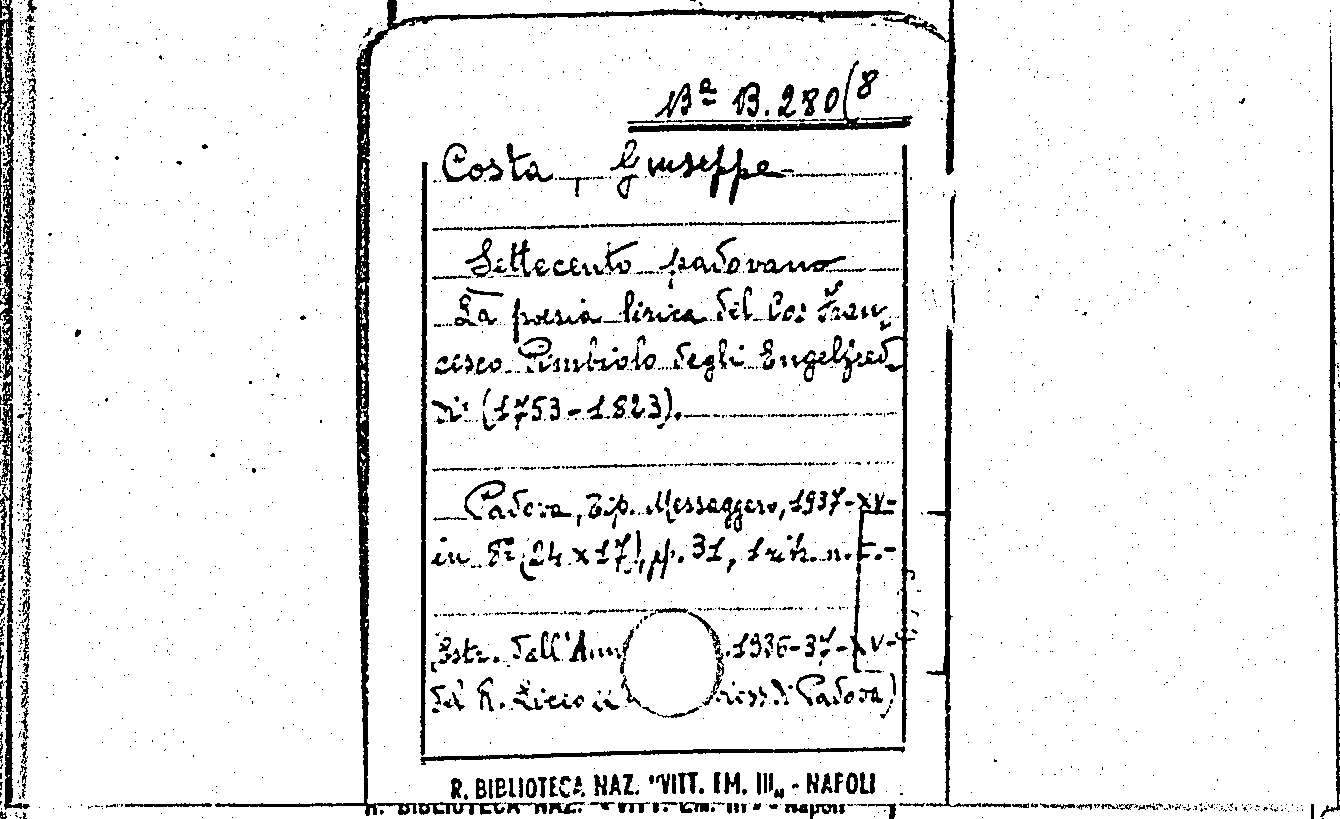 Bª B. 280(8
Costa, Giuseppe
Settecento padovano
La poesia lirica del Co: Fran-
cesco Pimbiolo degli Engelfred-
di (1753-1823).
Padova, Tip. Messaggero, 1937-XV-
in 8º (24 x 17), pp. 31, 1 ritr. n. t.-
(Estr. dall'Ann 1936-37-XV-
del R. Liceo di Padova)
R. BIBLIOTECA NAZ. "VITT. EM. III„ - NAPOLI
R. BIBLIOTECA NAZ. "VITT. EM. III" - Napoli